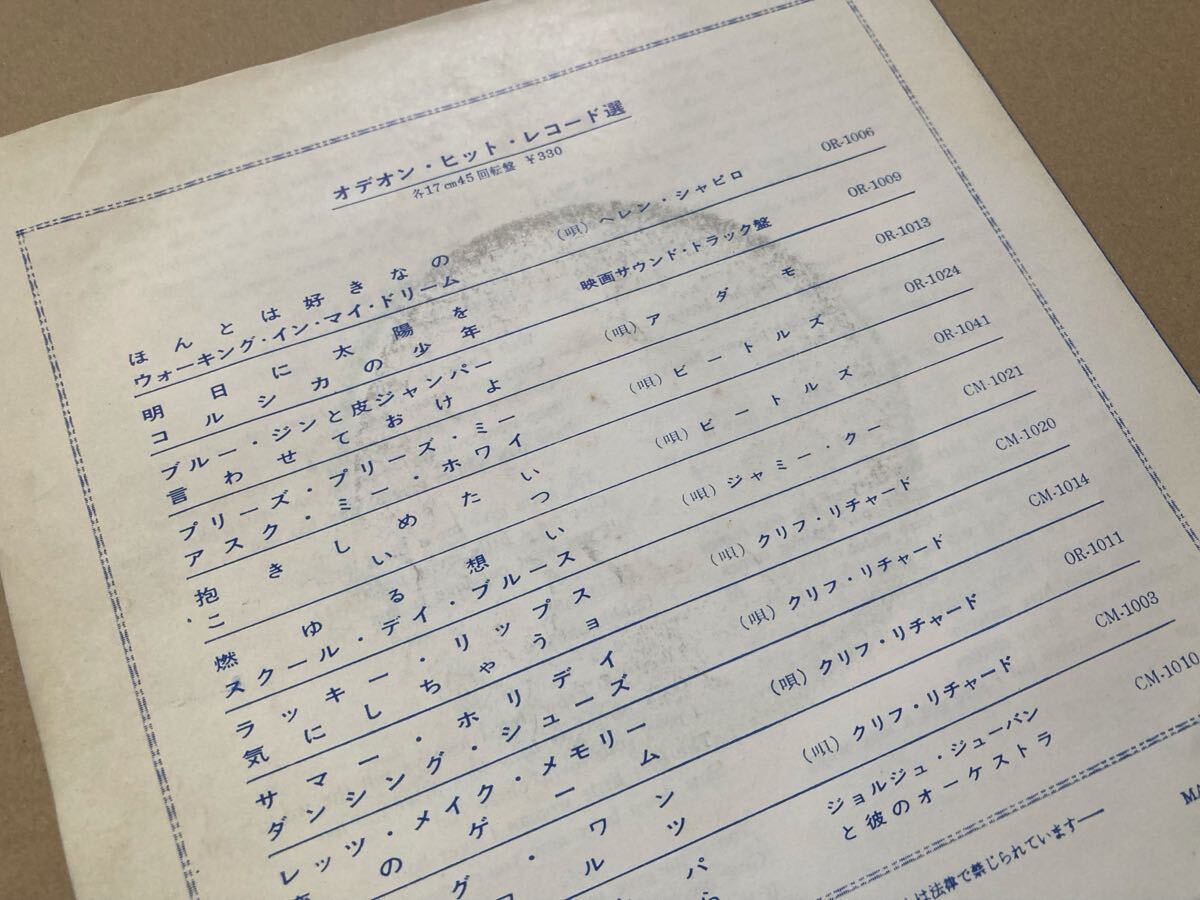 オデオン・ヒット・レコード選
各17cm45回転盤 ¥330
ほんとは好きなの
ウォーキング・イン・マイ・ドリーム
(唄) ヘレン・シャピロ
OR-1006
明日に太陽を
コルシカの少年
映画サウンド・トラック盤
OR-1009
ブルー・ジンと皮ジャンパー
言わせておけよ
(唄) アダモ
OR-1013
プリーズ・プリーズ・ミー
アスク・ミー・ホワイ
(唄) ビートルズ
OR-1024
抱きしめたい
こいつ
(唄) ビートルズ
OR-1041
燃ゆる想い
スクール・デイ・ブルース
(唄) ジャミー・クー
CM-1021
ラッキー・リップス
気にしちゃうョ
(唄) クリフ・リチャード
CM-1020
サマー・ホリデイ
ダンシング・シューズ
(唄) クリフ・リチャード
CM-1014
レッツ・メイク・メモリー
のゲーム
(唄) クリフ・リチャード
OR-1011
グ・ワン
ルツ
(唄) クリフ・リチャード
CM-1003
パ
ジョルジュ・ジューバン
と彼のオーケストラ
CM-1010
は法律で禁じられています
MA